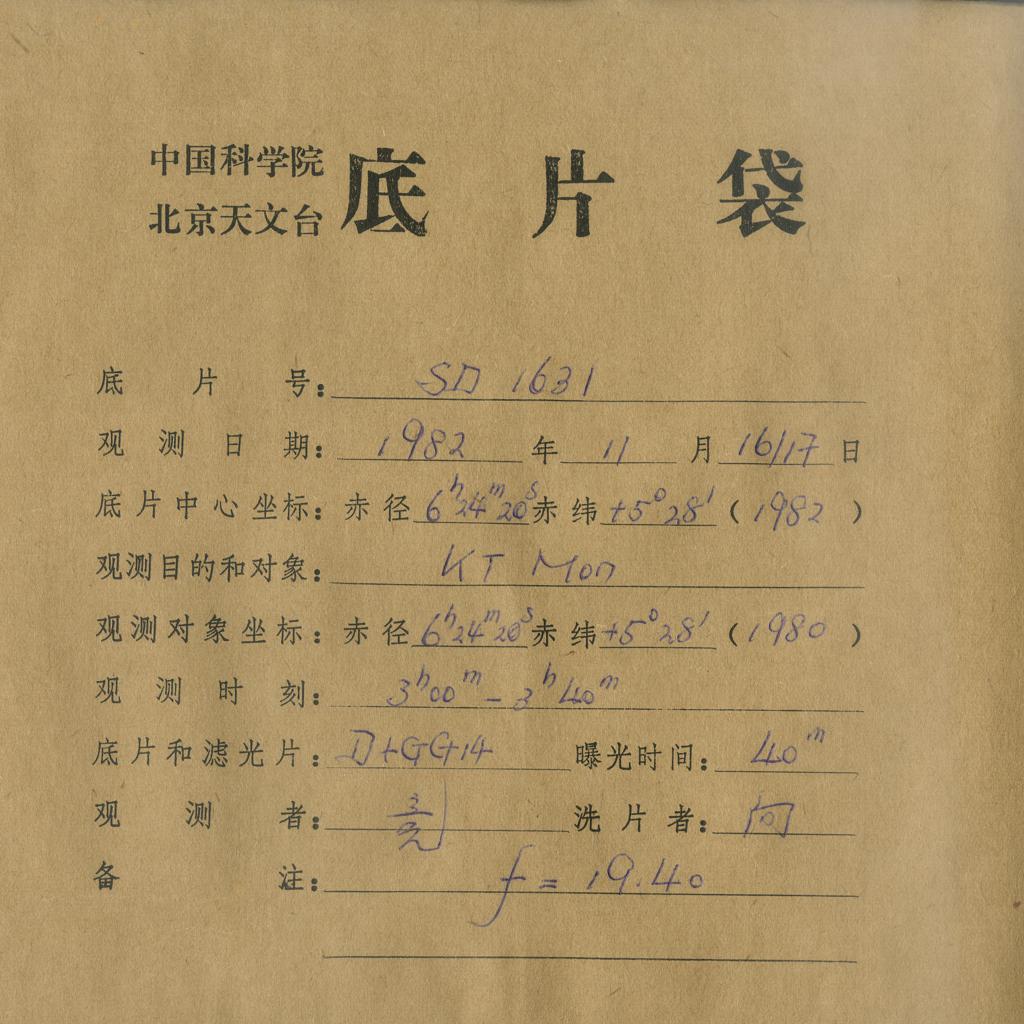 中国科学院
北京天文台
底片袋
底片号：SD 1631
观测日期：1982年11月16/17日
底片中心坐标：赤径6ʰ24ᵐ20ˢ赤纬+5°28′（1982）
观测目的和对象：KT Mon
观测对象坐标：赤径6ʰ24ᵐ20ˢ赤纬+5°28′（1980）
观测时刻：3ʰ00ᵐ - 3ʰ40ᵐ
底片和滤光片：D+GG14 曝光时间：40ᵐ
观测者： 洗片者：向
备注：f = 19.40